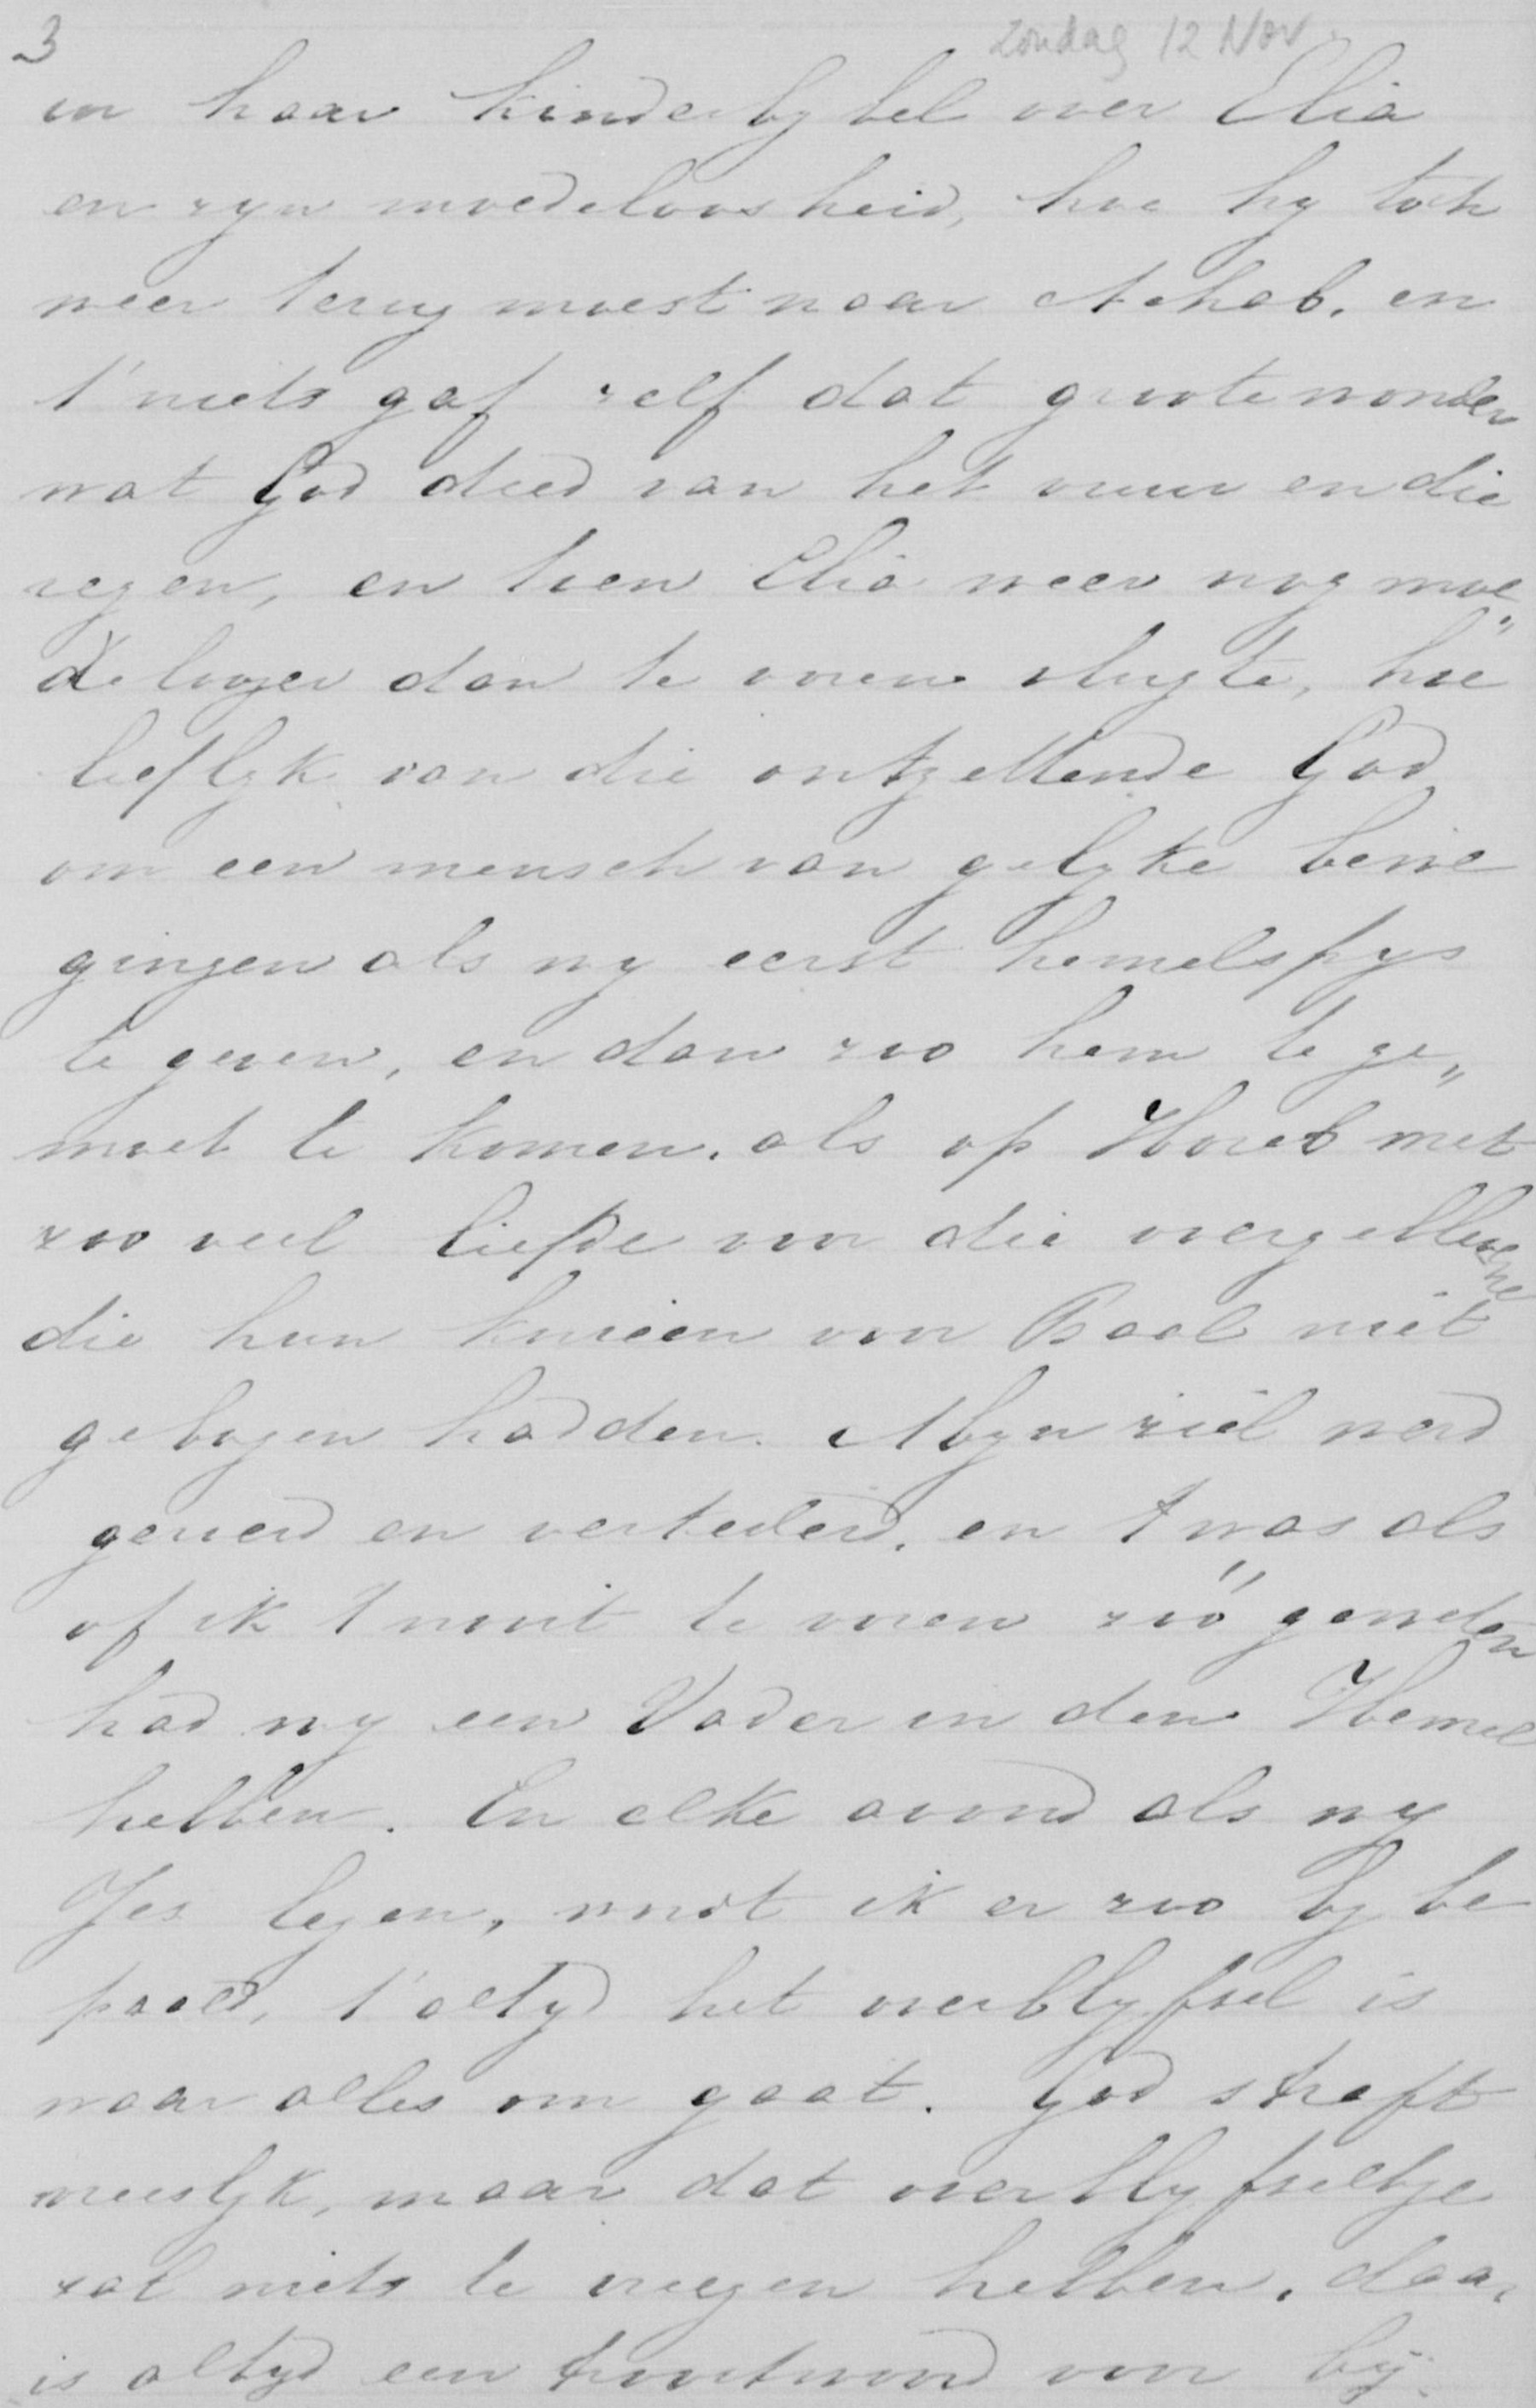 3
Zondag 12 Nov.
in haar kinderbybel over Elia
en zyn moedeloosheid, hoe hy toch
weer terug moest naar Achab, en
t'niets gaf zelf dat groote wonder
wat God deed van het vuur en die
regen, en toen Elia weer nog moe„
delozer dan te voren vlugte, hoe
lieflyk van die ontzettende God
om een mensch van gelyke bewe
gingen als wy eerst hemelspys
te geven, en dan zoo hem te ge„
moet te komen, als op Horeb met
zoo veel liefde voor die overgeblevene
die hun knieen voor Baal niet
gebogen hadden. Myn ziel werd
geroerd en vertederd, en t was als
of ik t nooit te voren zóó gevonden
had wy een Vader in den Hemel
hebben. En elke avond als wy
Jes lezen, word ik er zoo by be
paald, t'altyd het overblyfsel is
waar alles om gaat. God straft
vreeslyk, maar dat overblyfseltje
zal niets te vreezen hebben, daar
is altyd een troostwoord voor by.